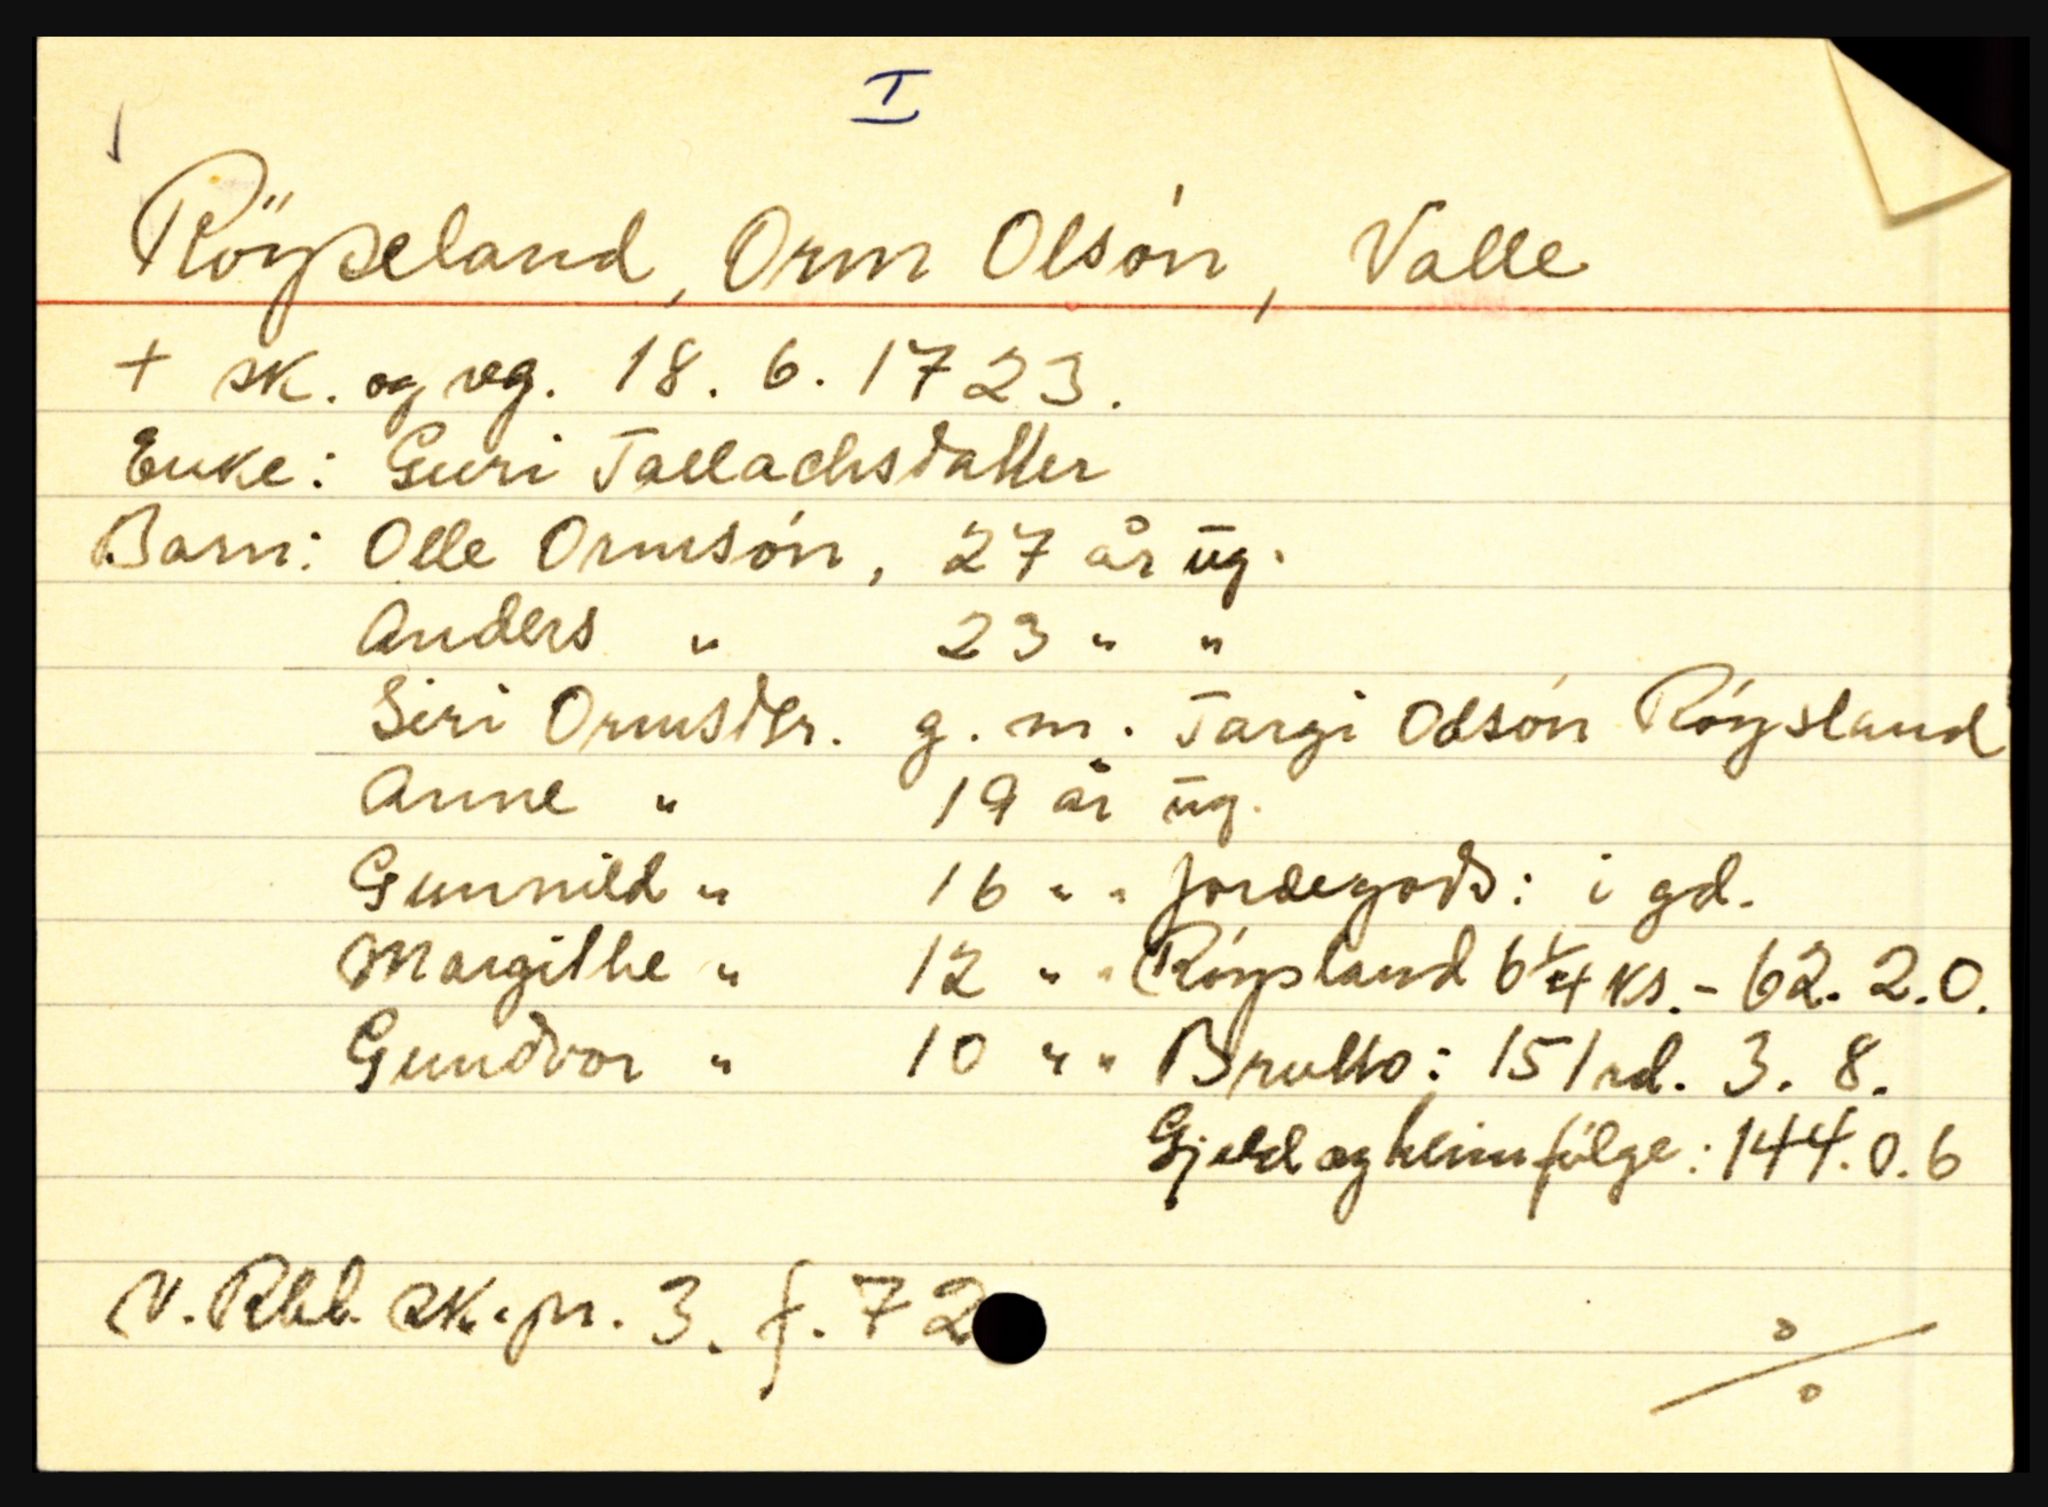 I
Röyseland, Orm Olsón, Valle
+ sk. og reg. 18. 6. 1723.
Enke: Guri Tallachsdatter
Barn: Olle Ormsón, 27 år ug.
Anders " 23 " "
Siri Ormsdtr. g. m. Targi Odsón Röysland
Anne " 19 år ug.
Gunnild " 16 " " Jordegods: i gd.
Margithe " 12 " " Röysland 6 1/4 ks. - 62. 2. 0.
Gundvor " 10 " " Brutto: 151 rd. 3. 8.
Gjeld og heimfölge: 144. 0. 6
N. Rbl. sk. pr. 3. f. 72
%